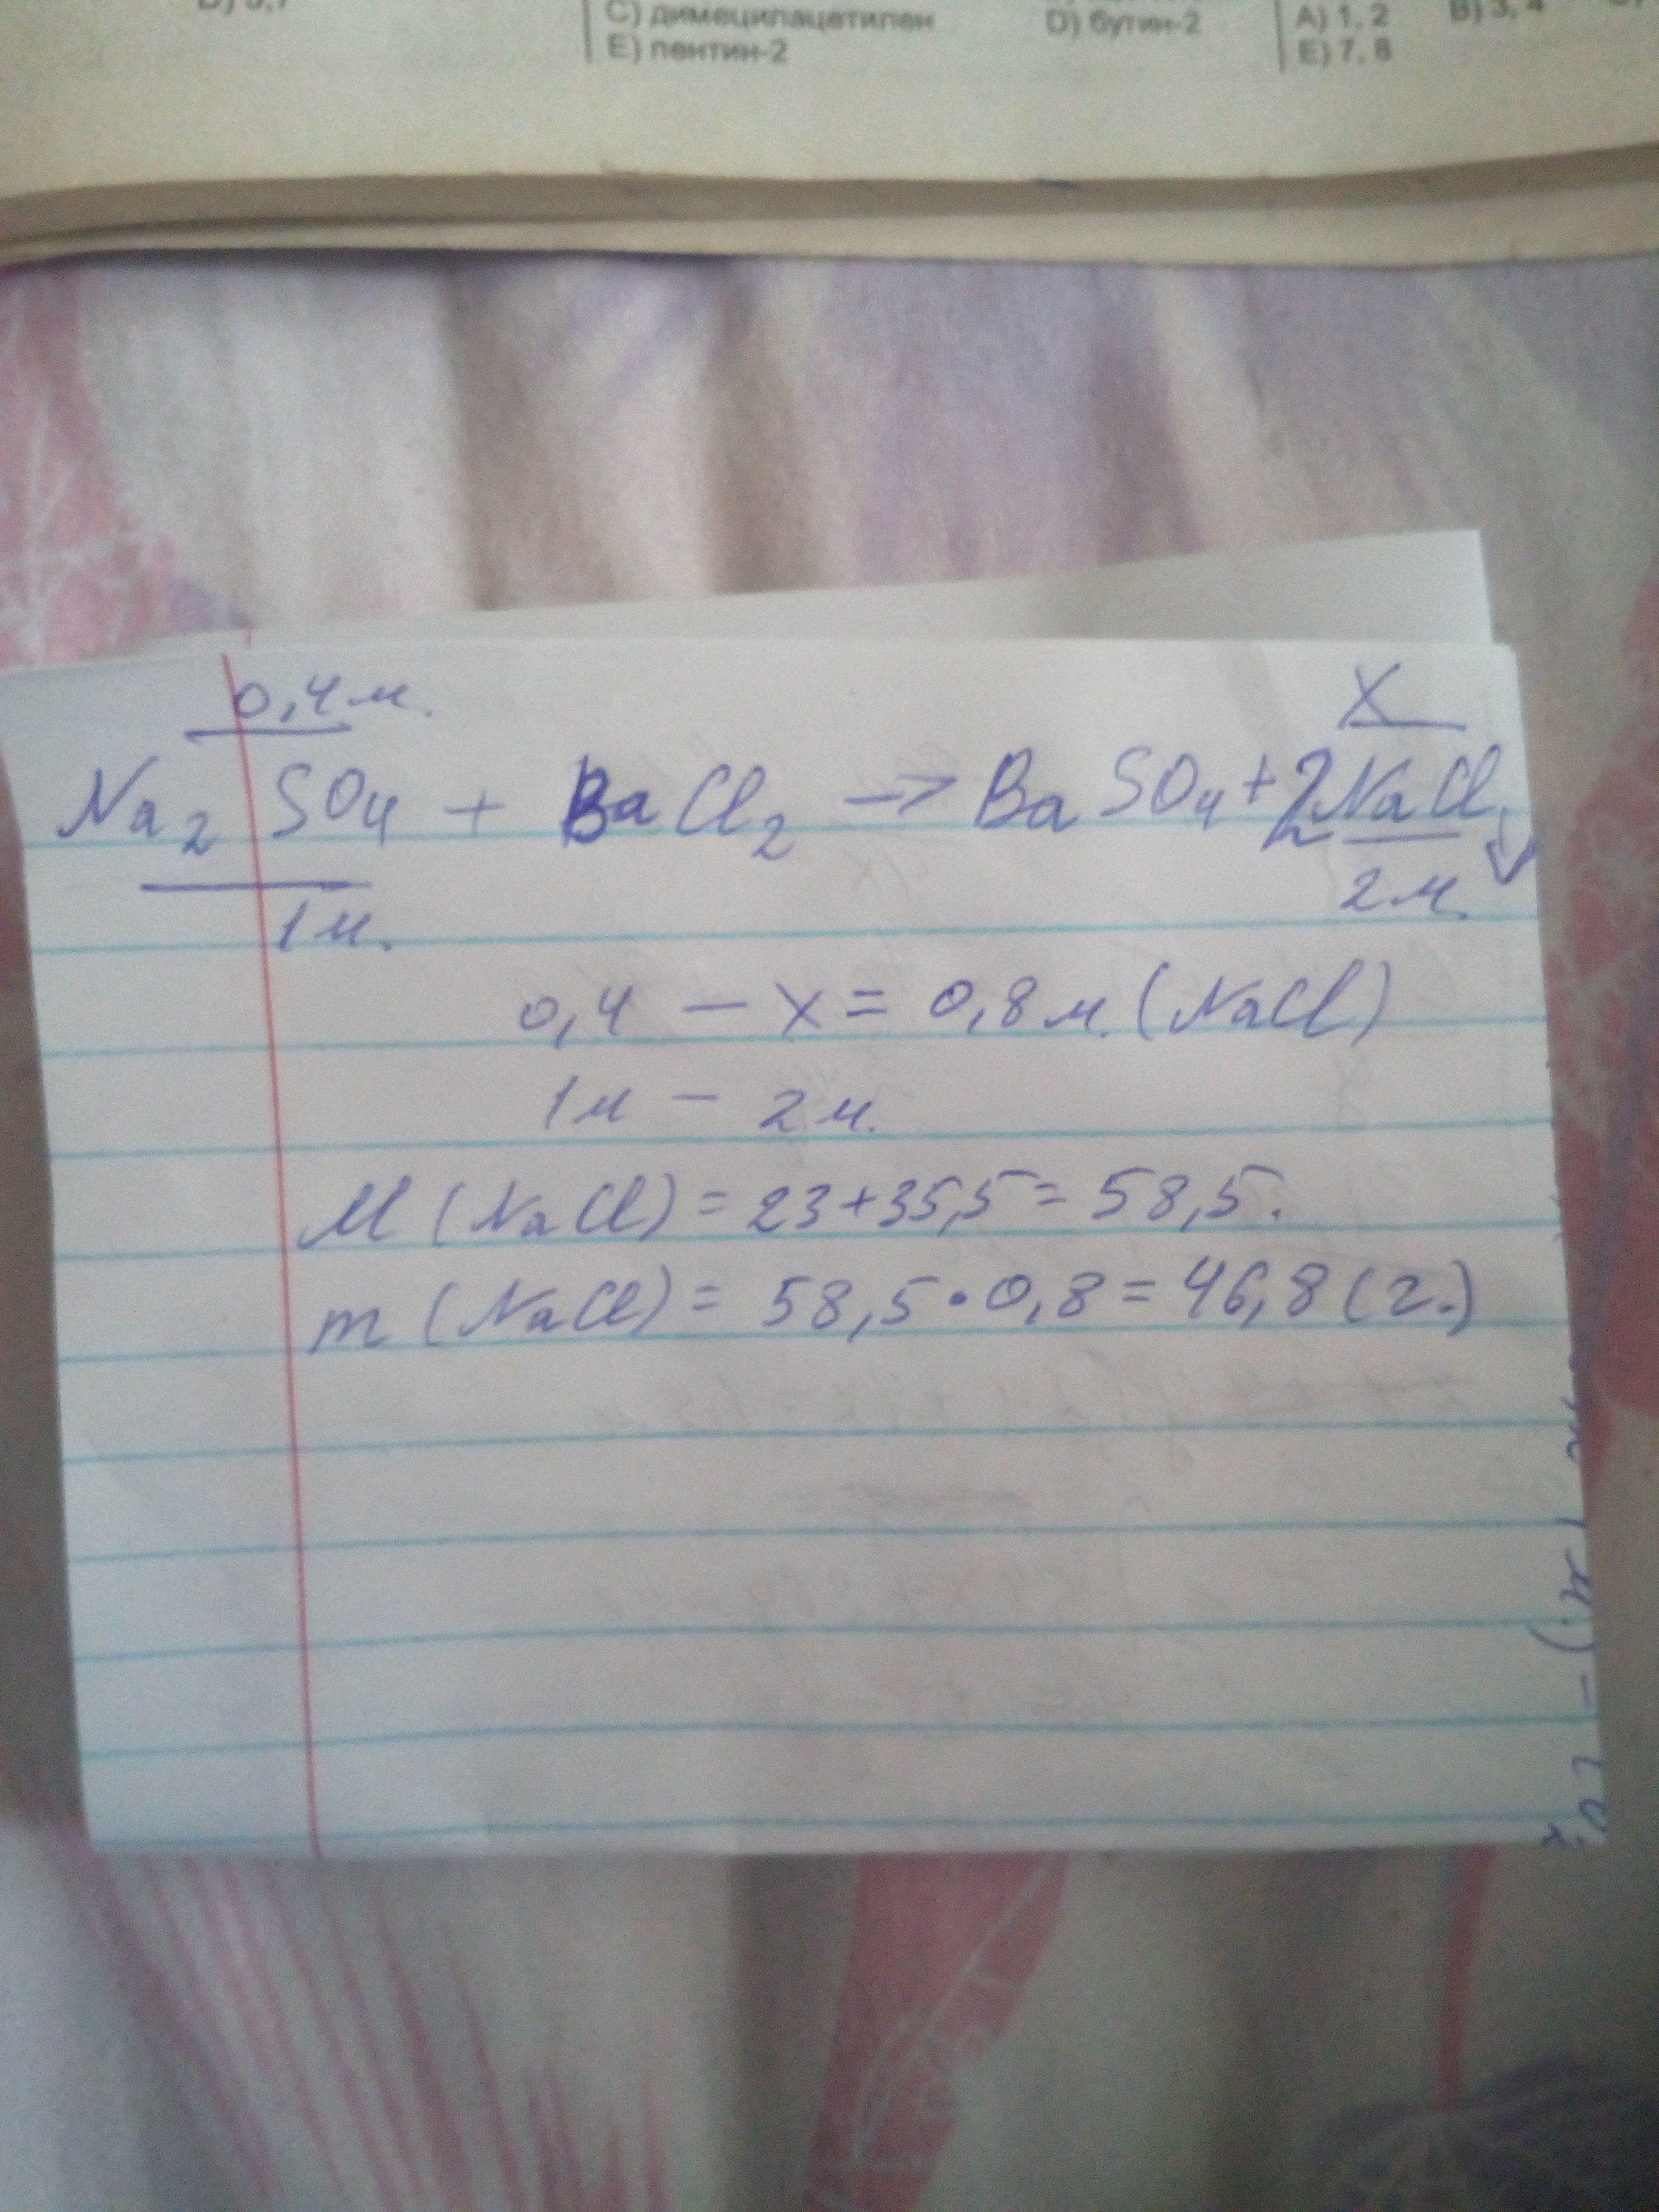 C) димецилацетилен D) бутин-2 A) 1, 2 B) 3, 4
E) пентин-2 E) 7, 8
0,4м. X
Na₂SO₄ + BaCl₂ → BaSO₄ + 2NaCl↓
1м. 2м.
0,4 – x = 0,8м. (NaCl)
1м – 2м.
M (NaCl) = 23+35,5 = 58,5.
m (NaCl) = 58,5 · 0,8 = 46,8 (г.)